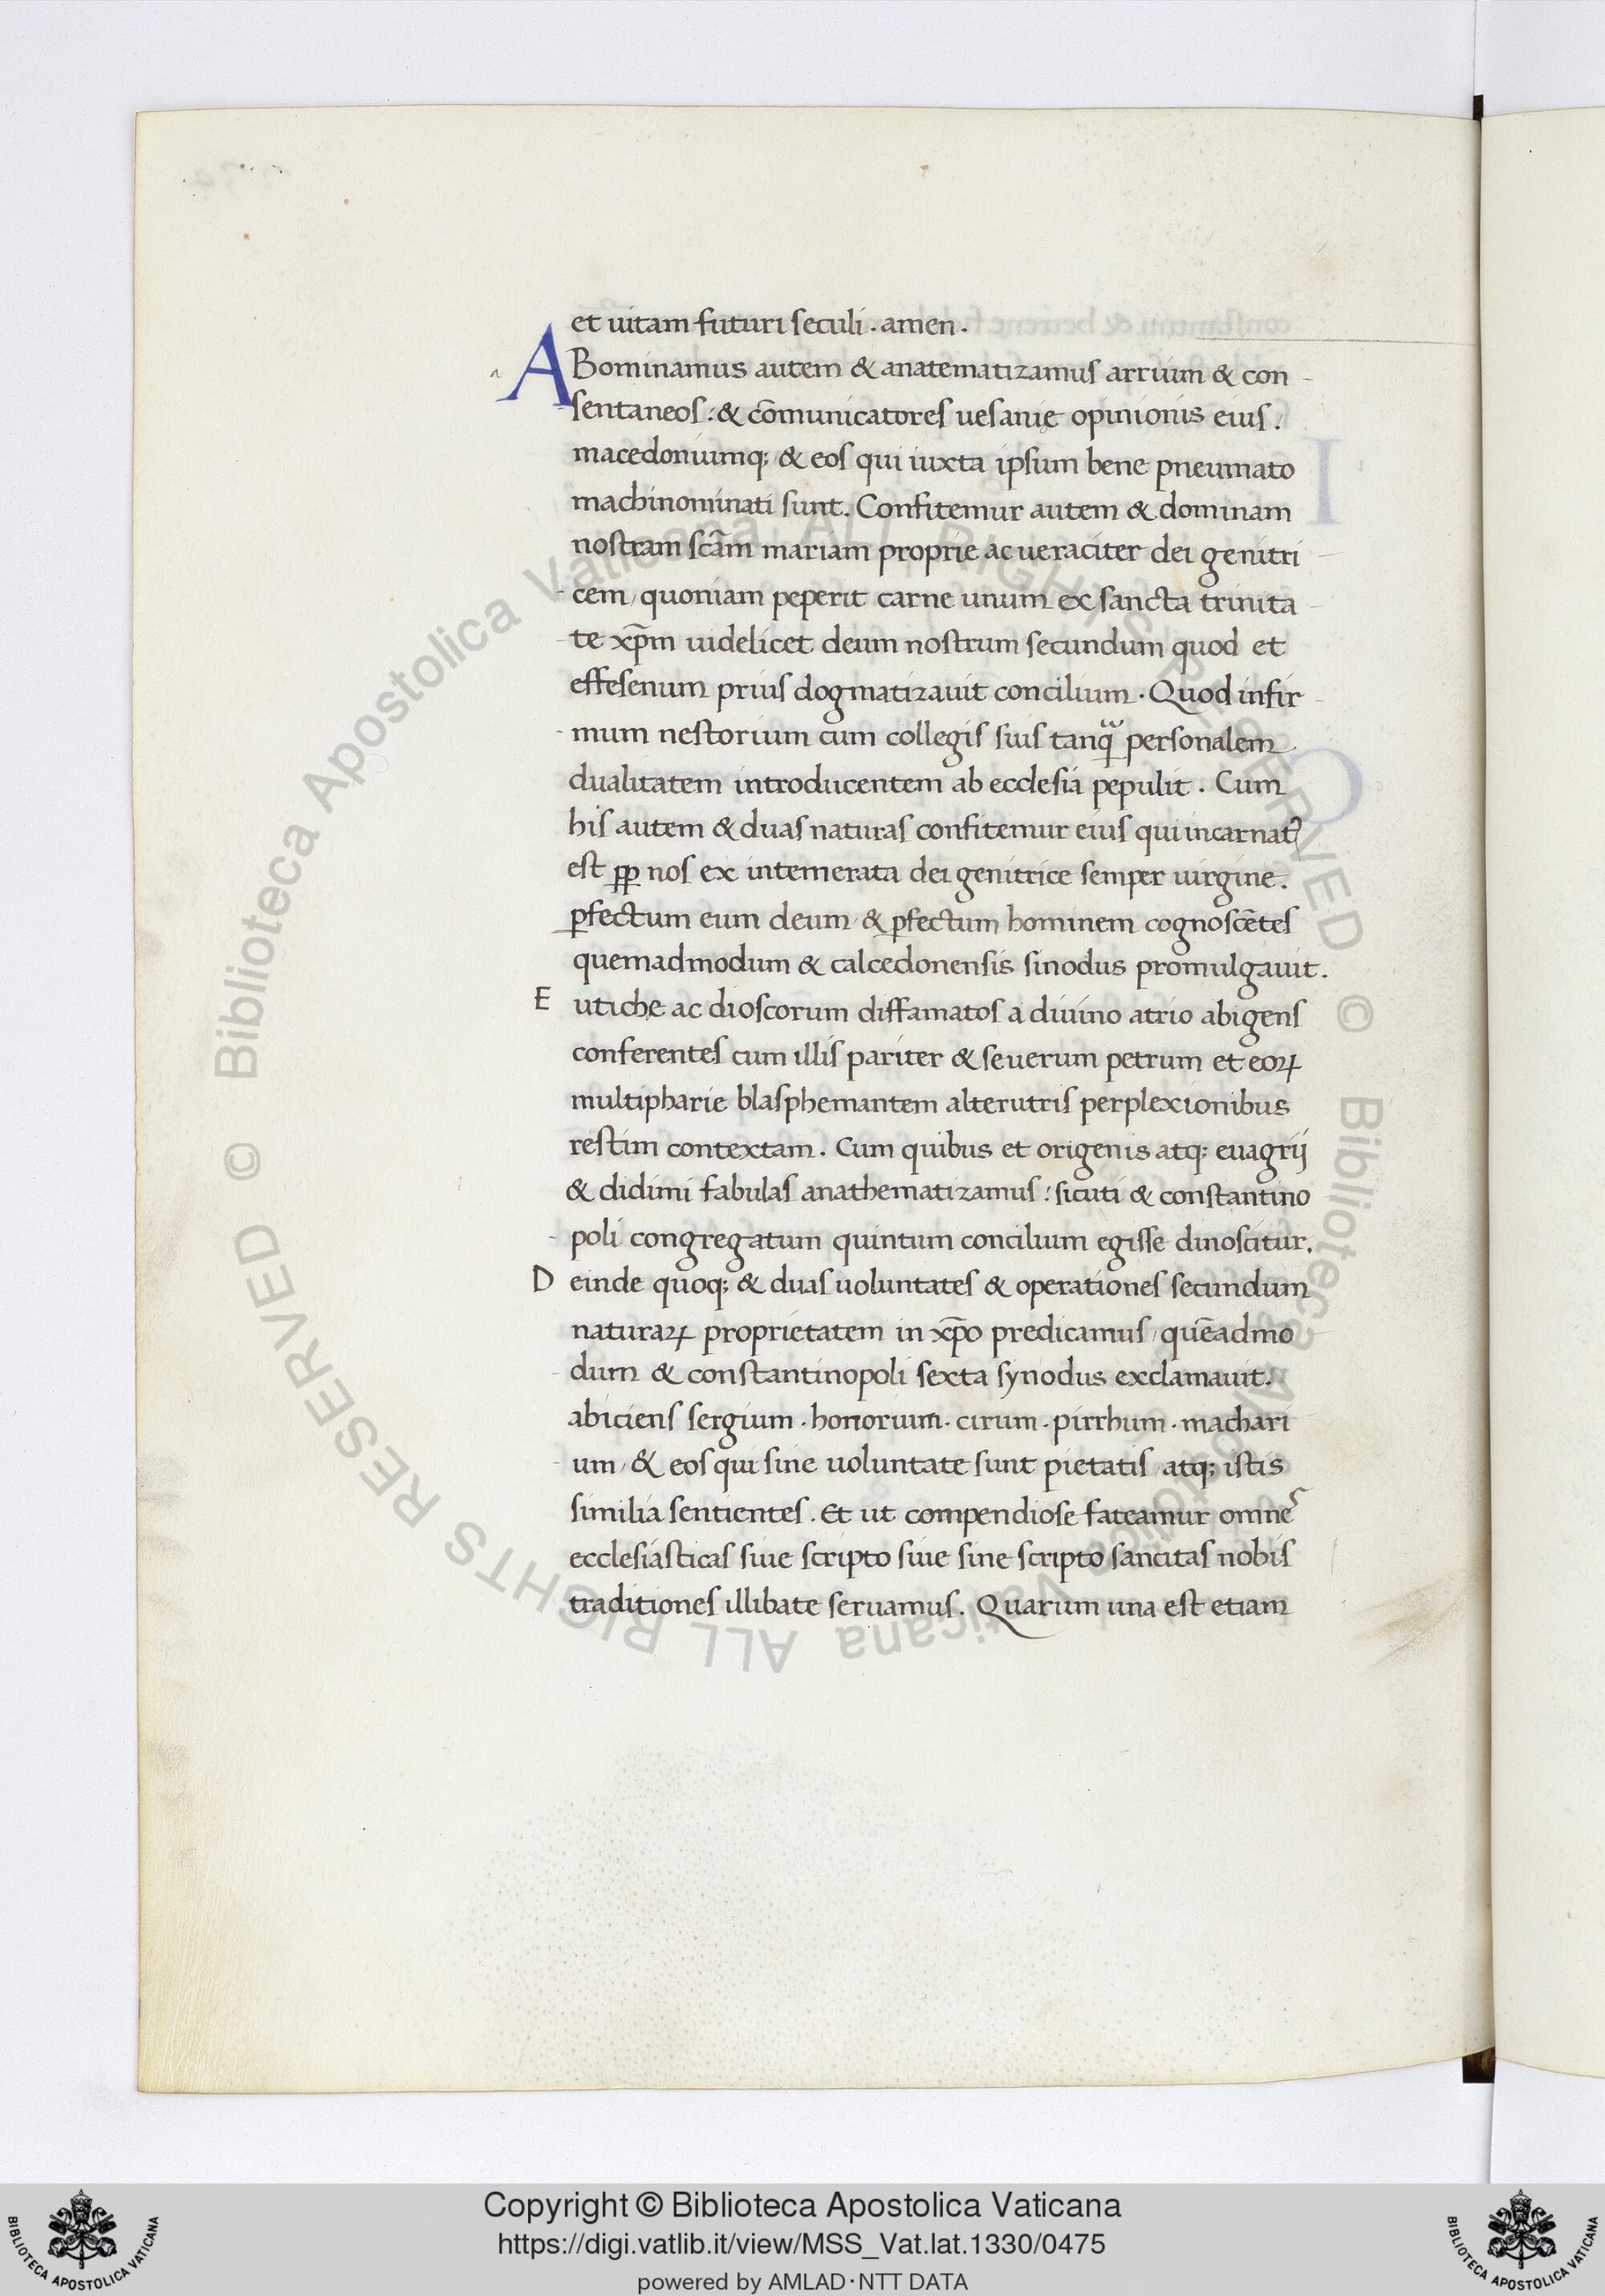 et uitam futuri seculi . amen .
ABominamus autem & anatematizamus arrium & con
sentaneos : & cōmunicatores uesanię opinionis eius :
macedoniumq; & eos qui iuxta ipsum bene pneumato
machinominati sunt. Confitemur autem & dominam
nostram scām mariam proprie ac ueraciter dei genitri
cem, quoniam peperit carne unum ex sancta trinita
te xp̄m uidelicet deum nostrum secundum quod et
effesenum prius dogmatizauit concilium . Quod infir
mum nestorium cum collegis suis tanq̃ personalem
dualitatem introducentem ab ecclesia pepulit . Cum
his autem & duas naturas confitemur eius qui incarnatꝰ
est ꝓp nos ex intemerata dei genitrice semper uirgine .
ꝑfectum eum deum, & ꝑfectum hominem cognoscētes
quemadmodum & calcedonensis sinodus promulgauit .
Eutichę ac dioscorum diffamatos a diuino atrio abigens
conferentes cum illis pariter & seuerum petrum et eoꝝ
multipharie blasphemantem alterutris perplexionibus
restim contextam . Cum quibus et origenis atq; euagrij
& didimi fabulas anathematizamus : sicuti & constantino
poli congregatum quintum concilium egisse dinoscitur.
Deinde quoq; & duas uoluntates & operationes secundum
naturaꝝ proprietatem in xp̄o predicamus, quēadmo
dum & constantinopoli sexta synodus exclamauit.
abiciens sergium . honorium . cirum . pirrhum . machari
um, & eos qui sine uoluntate sunt pietatis, atq; istis
similia sentientes . Et ut compendiose fateamur omnes
ecclesiasticas siue scripto siue sine scripto sancitas nobis
traditiones illibate seruamus . Quarum una est etiam
© Biblioteca Apostolica Vaticana ALL RIGHTS RESERVED © Biblioteca Apostolica Vaticana ALL RIGHTS RESERVED
Copyright © Biblioteca Apostolica Vaticana
https://digi.vatlib.it/view/MSS_Vat.lat.1330/0475
powered by AMLAD·NTT DATA
BIBLIOTECA APOSTOLICA VATICANA
BIBLIOTECA APOSTOLICA VATICANA